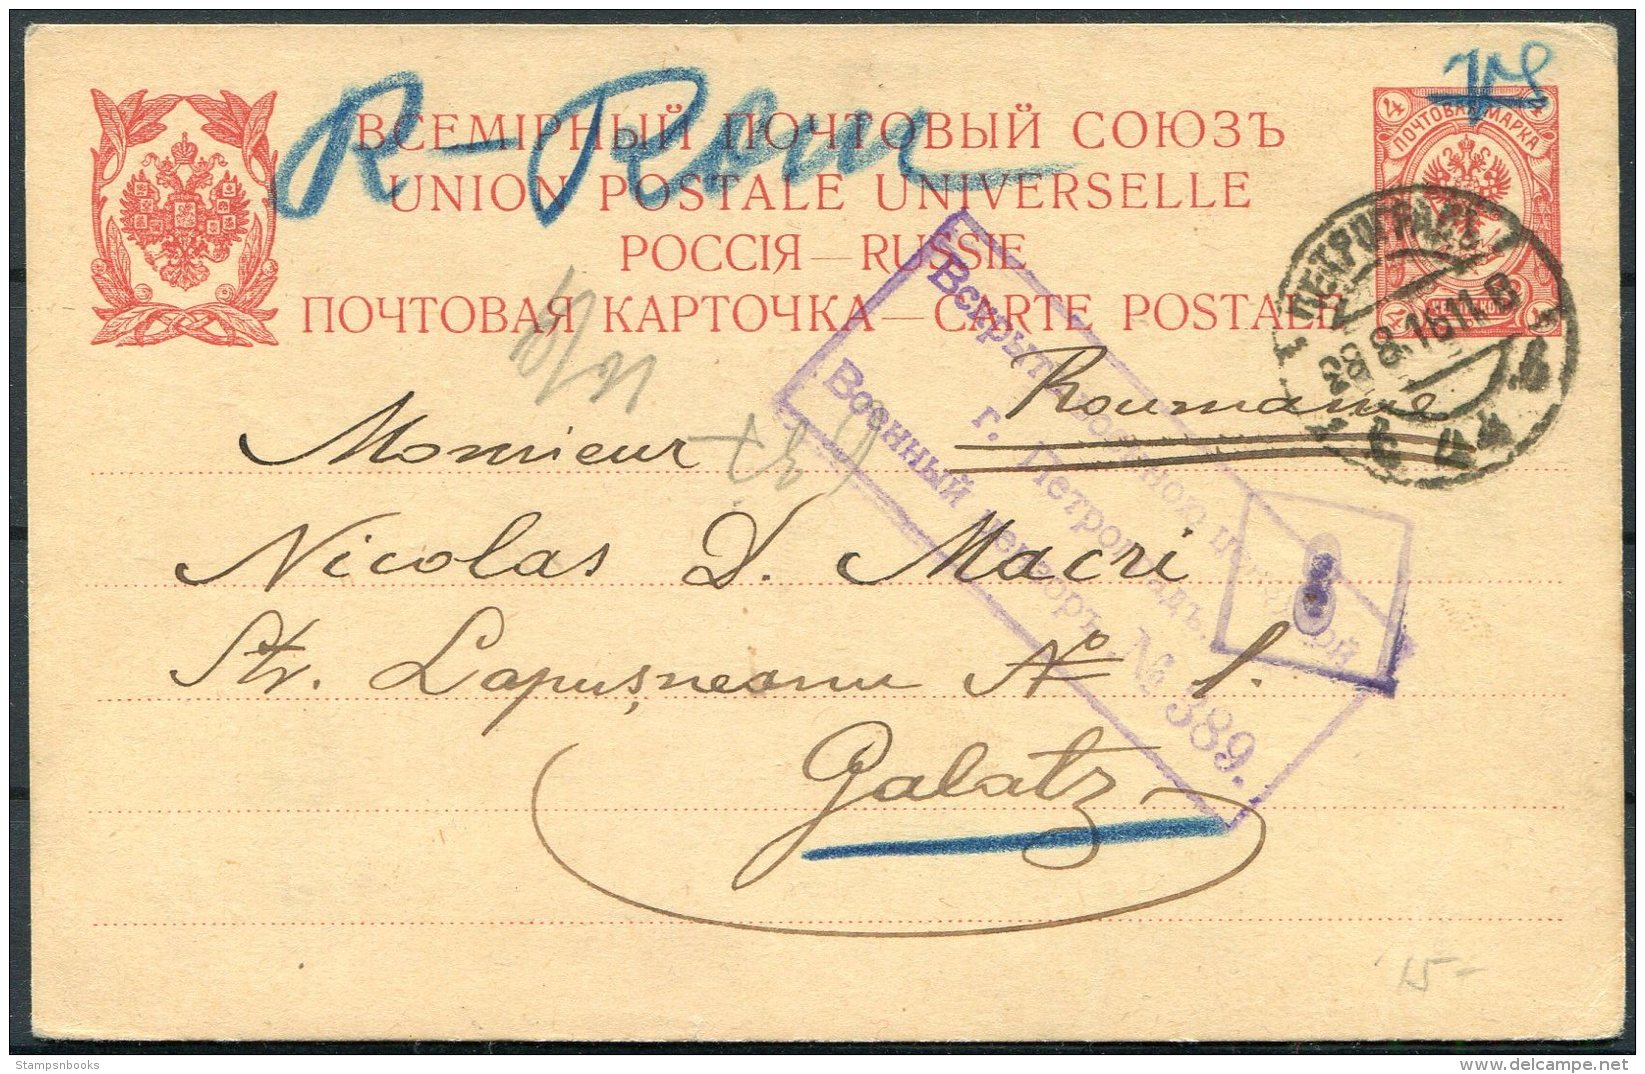 R-Rom
ВСЕМІРНЫЙ ПОЧТОВЫЙ СОЮЗЪ
UNION POSTALE UNIVERSELLE
РОССІЯ — RUSSIE
ПОЧТОВАЯ КАРТОЧКА — CARTE POSTALE
4 4
ПОЧТОВАЯ МАРКА
4 4
ПЕТРОГРАДЪ
28.8.16 11
Вскрыто военной цензурой
г. Петроградъ.
Военный цензоръ № 389.
Roumanie
Monsieur
Nicolas D. Macri
Str. Lapușneanu No 1.
Galatz
15-
Stampsnbooks